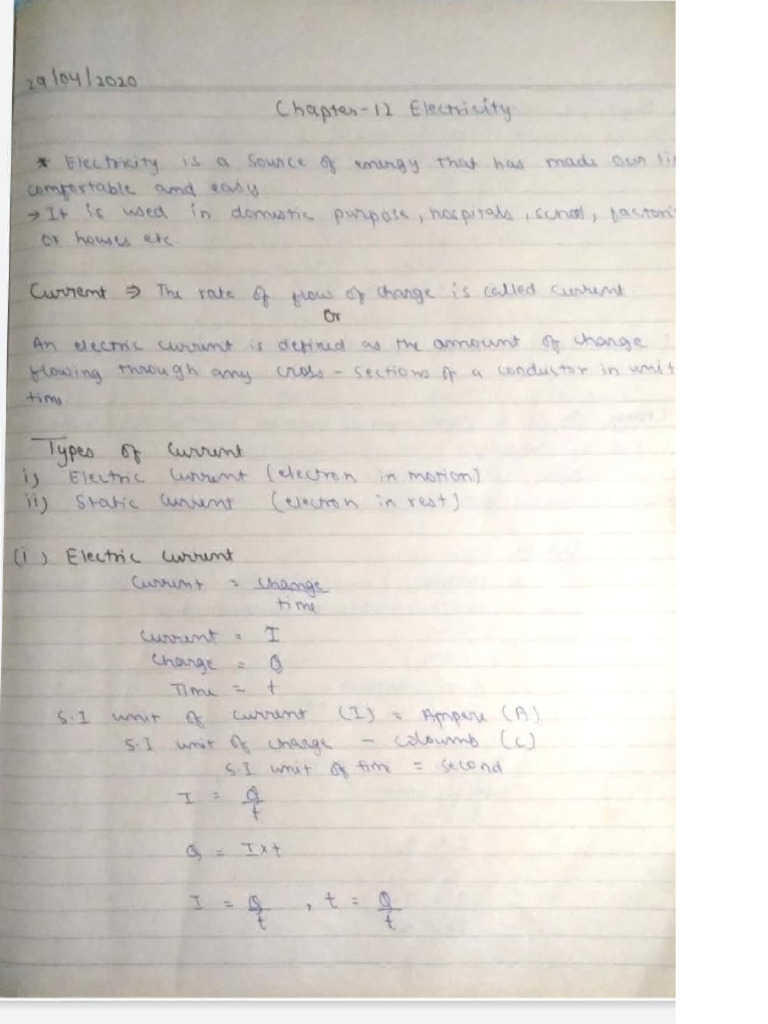 29/04/2020
Chapter-12 Electricity
* Electricity is a source of energy that has made our li
comfortable and easy
→ It is used in domestic purpose, hospitals, school, factori
or houses etc.
Current ⇒ The rate of flow of charge is called current
Or
An electric current is defined as the amount of charge
flowing through any cross-sections of a conductor in unit
time.
Types of Current
i) Electric Current (electron in motion)
ii) Static Current (electron in rest)
(i) Electric current
Current = charge
time
Current = I
Charge = Q
Time = t
S.I unit of current (I) = Ampere (A)
S.I unit of charge - coloumb (C)
S.I unit of time = second
I = Q
t
Q = I×t
I = Q , t = Q
t t